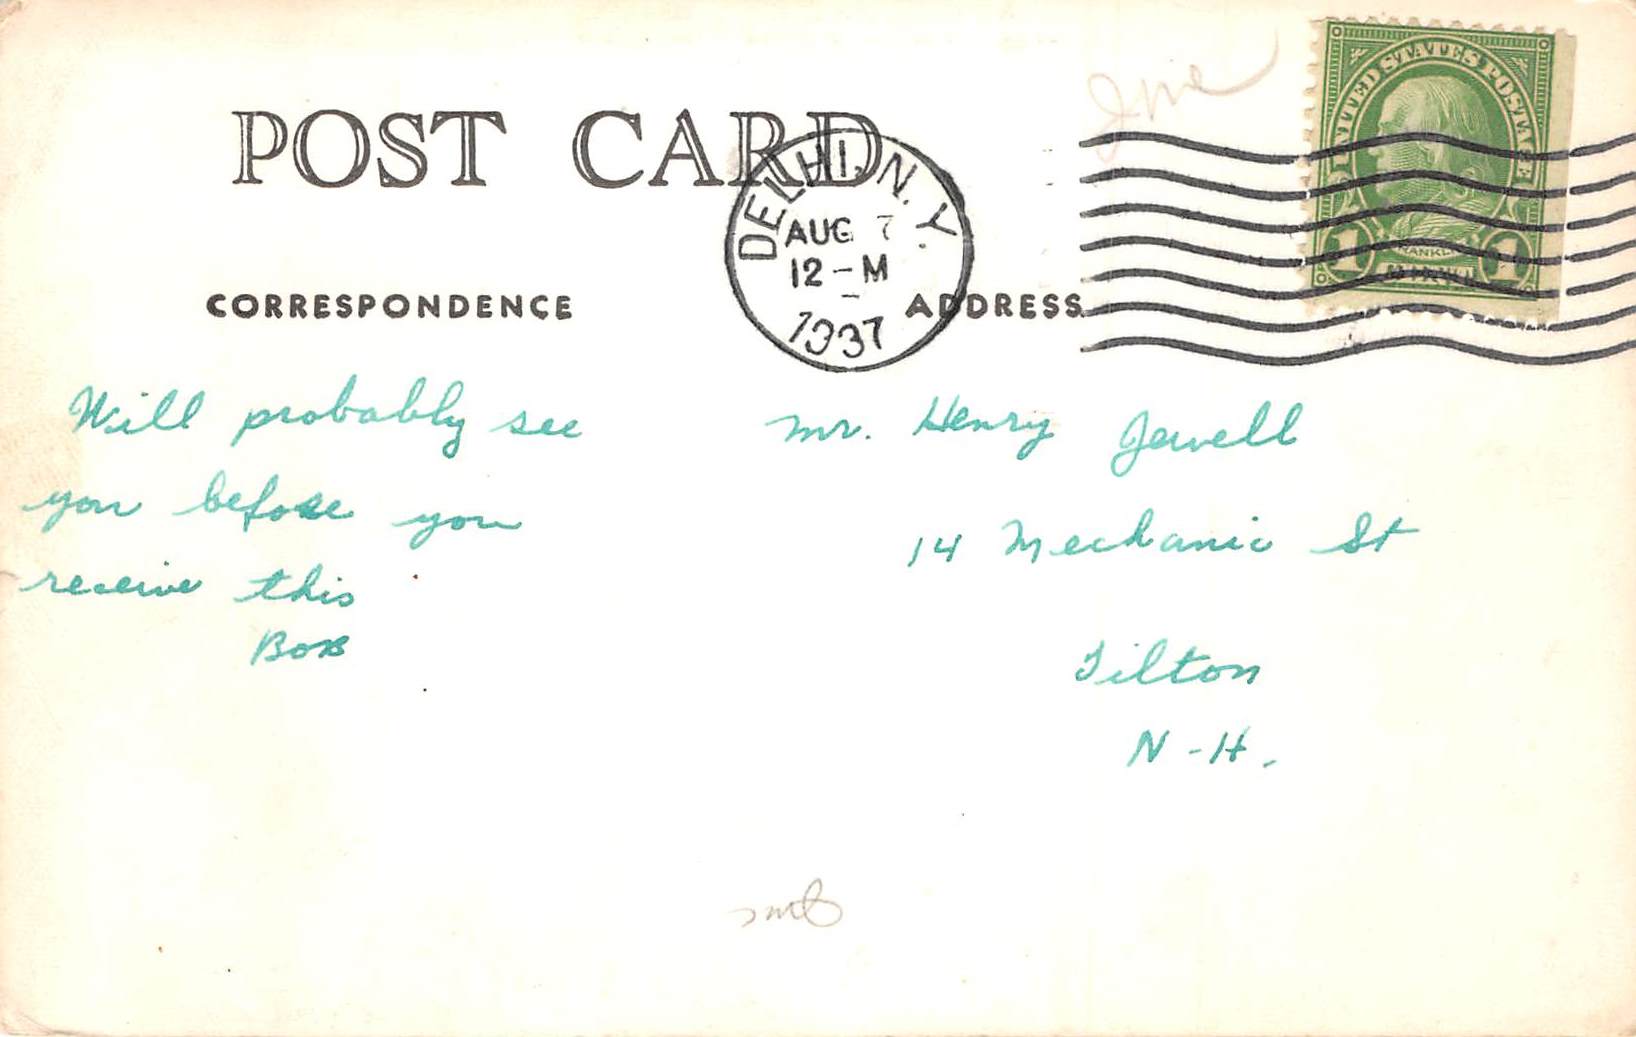 POST CARD
UNITED STATES POSTAGE
FRANKLIN
1 1
DELHI, N.Y.
AUG 7
12-M
1937
CORRESPONDENCE
ADDRESS
Will probably see
you before you
receive this
Bob
Mr. Henry Jewell
14 Mechanic St
Tilton
N-H.